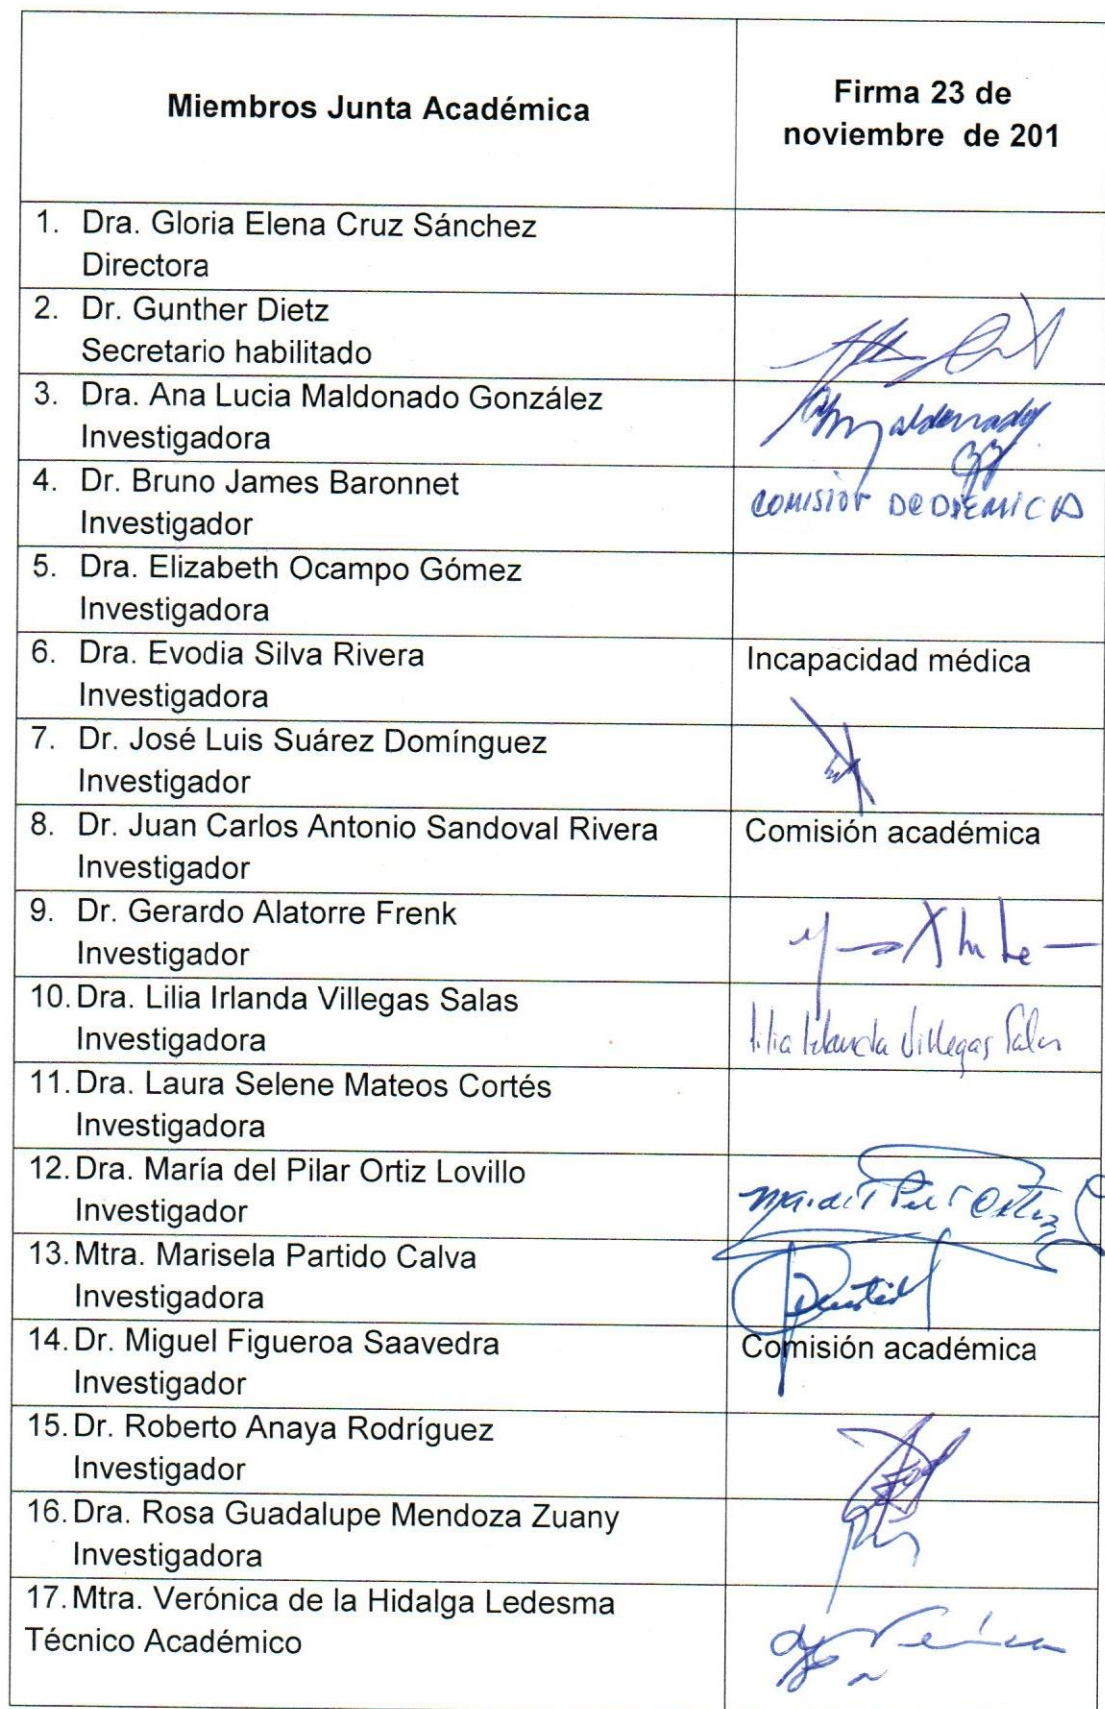 Miembros Junta Académica
Firma 23 de
noviembre de 201
1. Dra. Gloria Elena Cruz Sánchez
Directora
2. Dr. Gunther Dietz
Secretario habilitado
3. Dra. Ana Lucia Maldonado González
Investigadora
Maldonado
4. Dr. Bruno James Baronnet
Investigador
COMISIÓN
5. Dra. Elizabeth Ocampo Gómez
Investigadora
6. Dra. Evodia Silva Rivera
Investigadora
Incapacidad médica
7. Dr. José Luis Suárez Domínguez
Investigador
8. Dr. Juan Carlos Antonio Sandoval Rivera
Investigador
Comisión académica
9. Dr. Gerardo Alatorre Frenk
Investigador
10. Dra. Lilia Irlanda Villegas Salas
Investigadora
Lilia Irlanda Villegas Salas
11. Dra. Laura Selene Mateos Cortés
Investigadora
12. Dra. María del Pilar Ortiz Lovillo
Investigador
13. Mtra. Marisela Partido Calva
Investigadora
14. Dr. Miguel Figueroa Saavedra
Investigador
Comisión académica
15. Dr. Roberto Anaya Rodríguez
Investigador
16. Dra. Rosa Guadalupe Mendoza Zuany
Investigadora
17. Mtra. Verónica de la Hidalga Ledesma
Técnico Académico